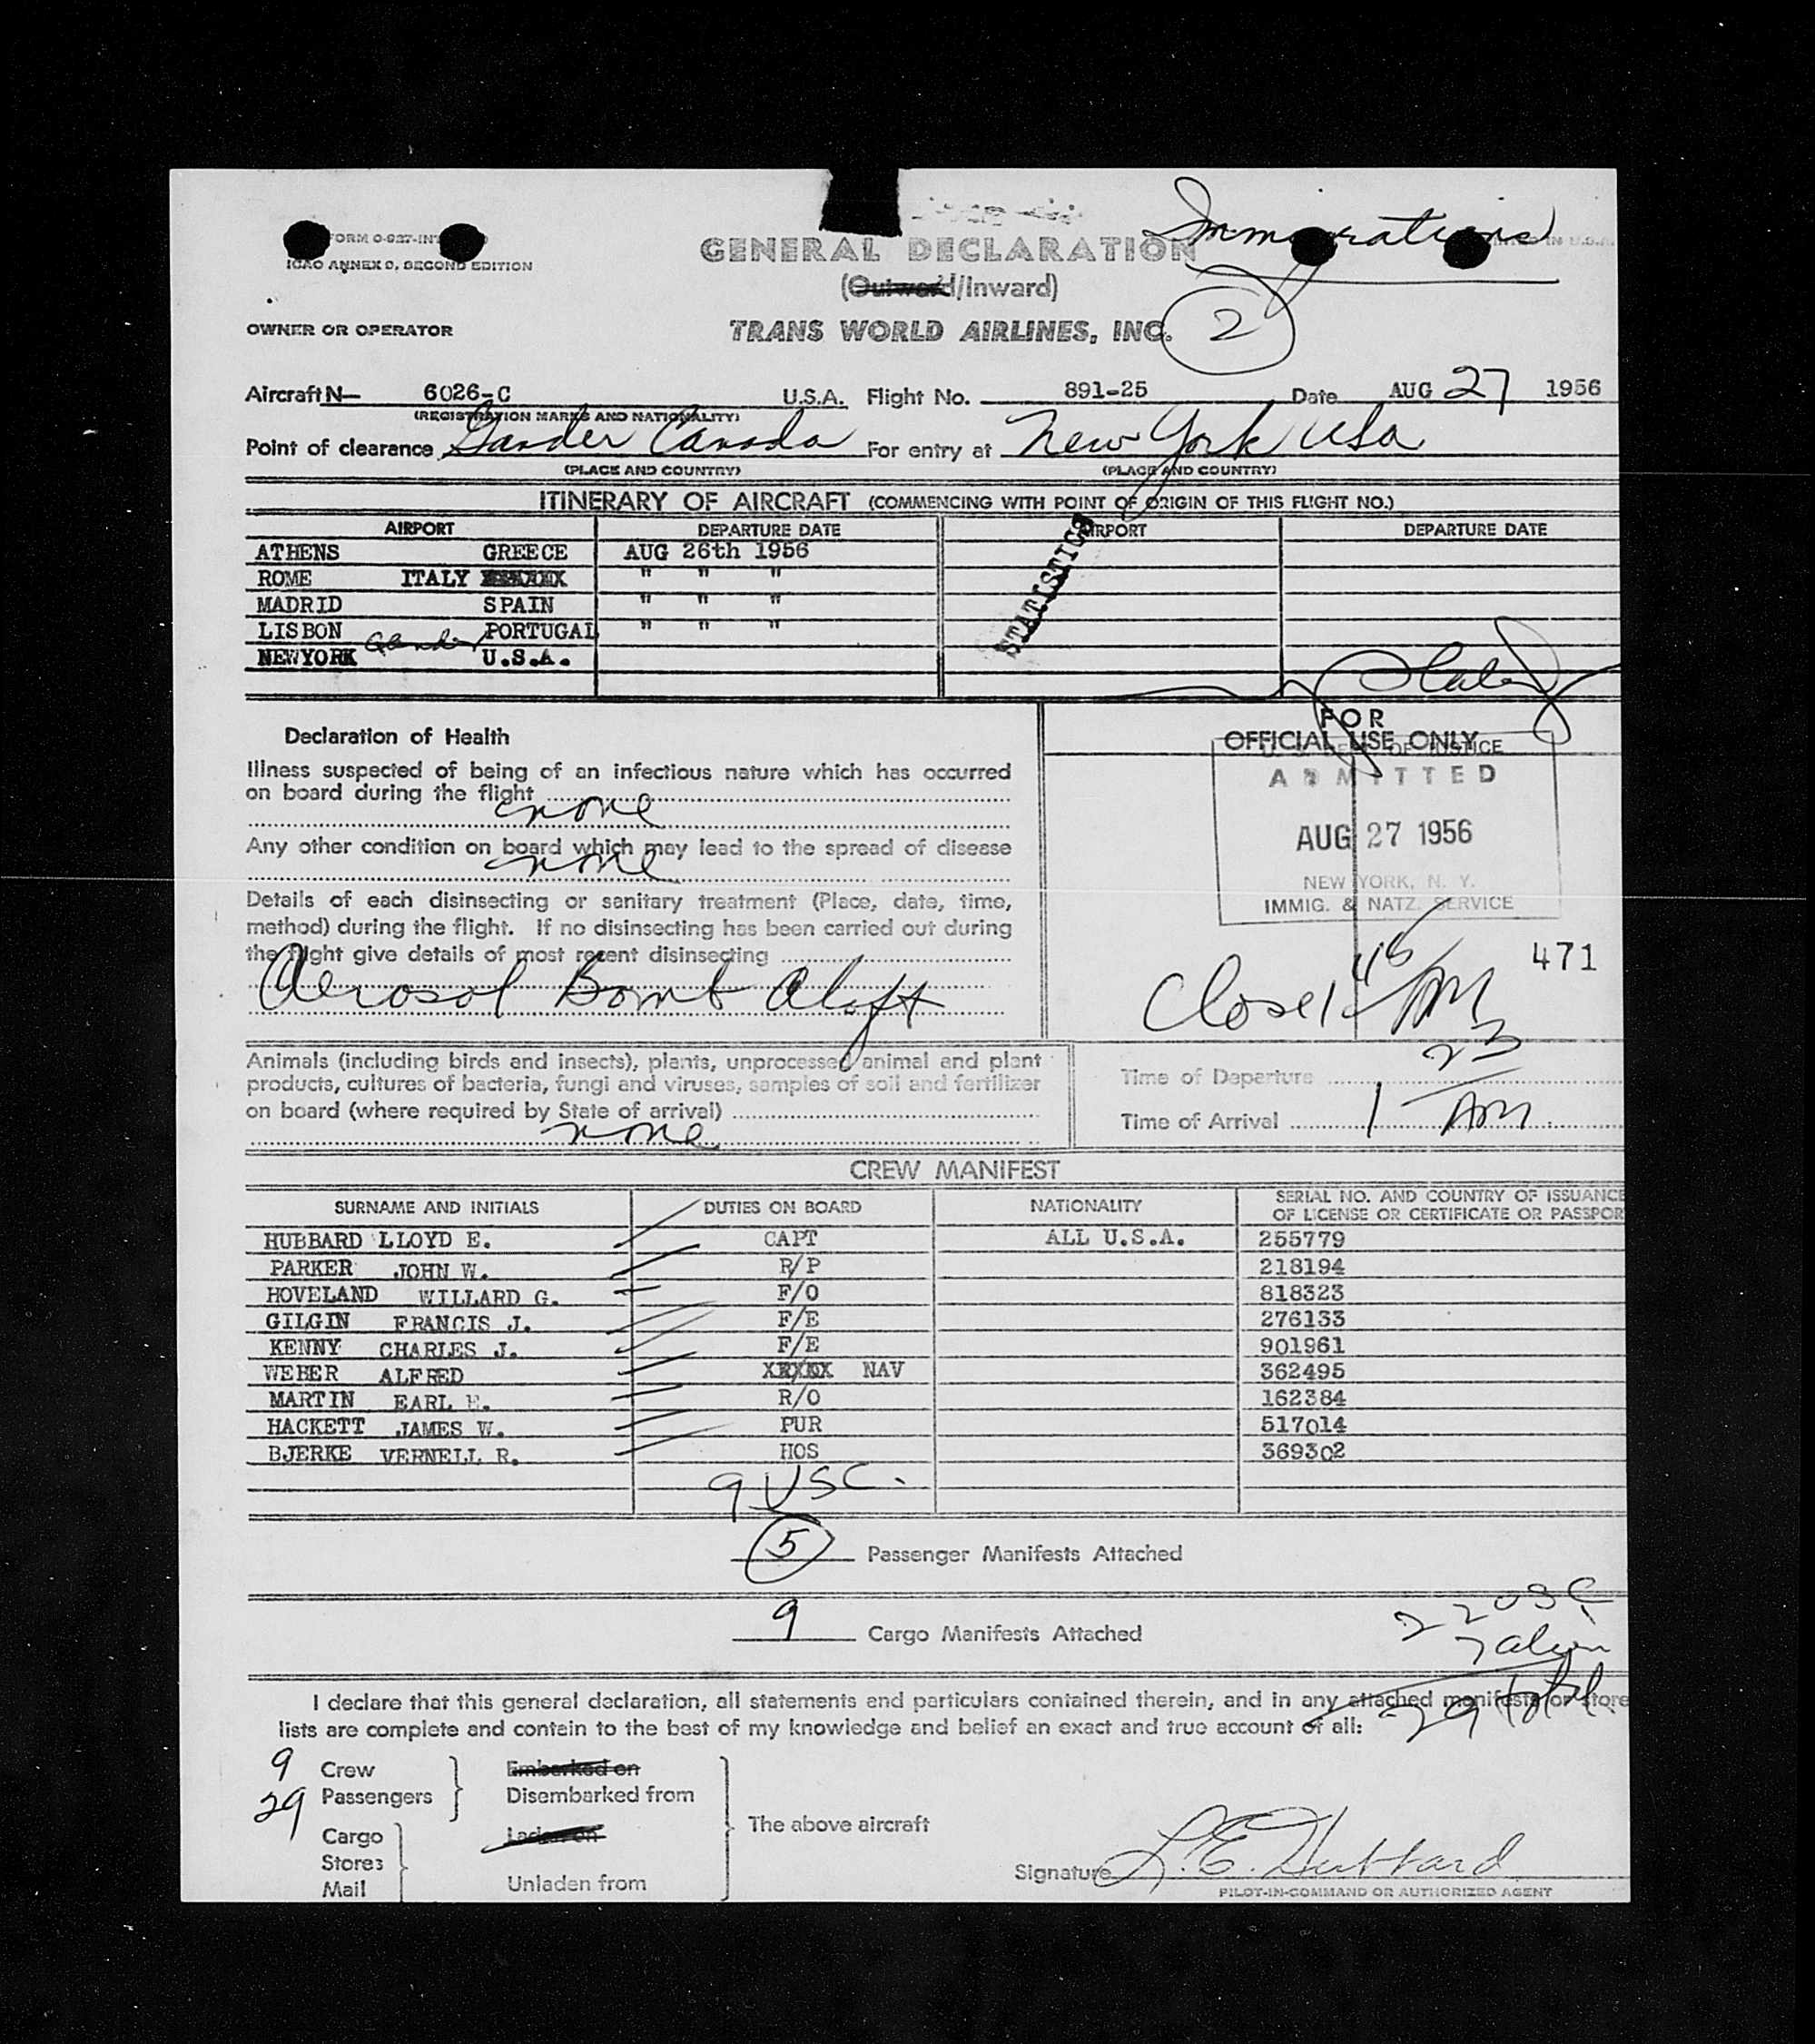 Immigrations
FORM O-927-INT
ICAO ANNEX 9, SECOND EDITION
GENERAL DECLARATION
(Outward/Inward)
OWNER OR OPERATOR TRANS WORLD AIRLINES, INC. 2
Aircraft N— 6026-C U.S.A. Flight No. 891-25 Date AUG 27 1956
(REGISTRATION MARKS AND NATIONALITY)
Point of clearance Gander Canada For entry at New York USA
(PLACE AND COUNTRY) (PLACE AND COUNTRY)
ITINERARY OF AIRCRAFT (COMMENCING WITH POINT OF ORIGIN OF THIS FLIGHT NO.)
AIRPORT DEPARTURE DATE AIRPORT DEPARTURE DATE
ATHENS GREECE AUG 26th 1956
ROME ITALY " " "
MADRID SPAIN " " "
LISBON PORTUGAL " " "
Gander
NEWYORK U.S.A.
STATISTICS
FOR
OFFICIAL USE ONLY
Declaration of Health
Illness suspected of being of an infectious nature which has occurred
on board during the flight
none
Any other condition on board which may lead to the spread of disease
none
Details of each disinsecting or sanitary treatment (Place, date, time,
method) during the flight. If no disinsecting has been carried out during
the flight give details of most recent disinsecting
Aerosol Bomb Aloft
U.S. DEPT. OF JUSTICE
ADMITTED
AUG 27 1956
NEW YORK, N. Y.
IMMIG. & NATZ. SERVICE
471
Close 1 46 AM
Animals (including birds and insects), plants, unprocessed animal and plant
products, cultures of bacteria, fungi and viruses, samples of soil and fertilizer
on board (where required by State of arrival)
none
Time of Departure
Time of Arrival 1 23 AM
CREW MANIFEST
SURNAME AND INITIALS DUTIES ON BOARD NATIONALITY SERIAL NO. AND COUNTRY OF ISSUANCE
OF LICENSE OR CERTIFICATE OR PASSPOR
HUBBARD LLOYD E. CAPT ALL U.S.A. 255779
PARKER JOHN W. R/P 218194
HOVELAND WILLARD G. F/O 818323
GILGIN FRANCIS J. F/E 276133
KENNY CHARLES J. F/E 901961
WEBER ALFRED NAV 362495
MARTIN EARL E. R/O 162384
HACKETT JAMES W. PUR 517014
BJERKE VERNELL R. HOS 369302
9 USC.
5 Passenger Manifests Attached
9 Cargo Manifests Attached
22 USC
7 alien
29 total
I declare that this general declaration, all statements and particulars contained therein, and in any attached manifests or store
lists are complete and contain to the best of my knowledge and belief an exact and true account of all:
9 Crew Embarked on
29 Passengers Disembarked from
The above aircraft
Cargo Laden on
Stores
Mail Unladen from
Signature L.E. Hubbard
PILOT-IN-COMMAND OR AUTHORIZED AGENT